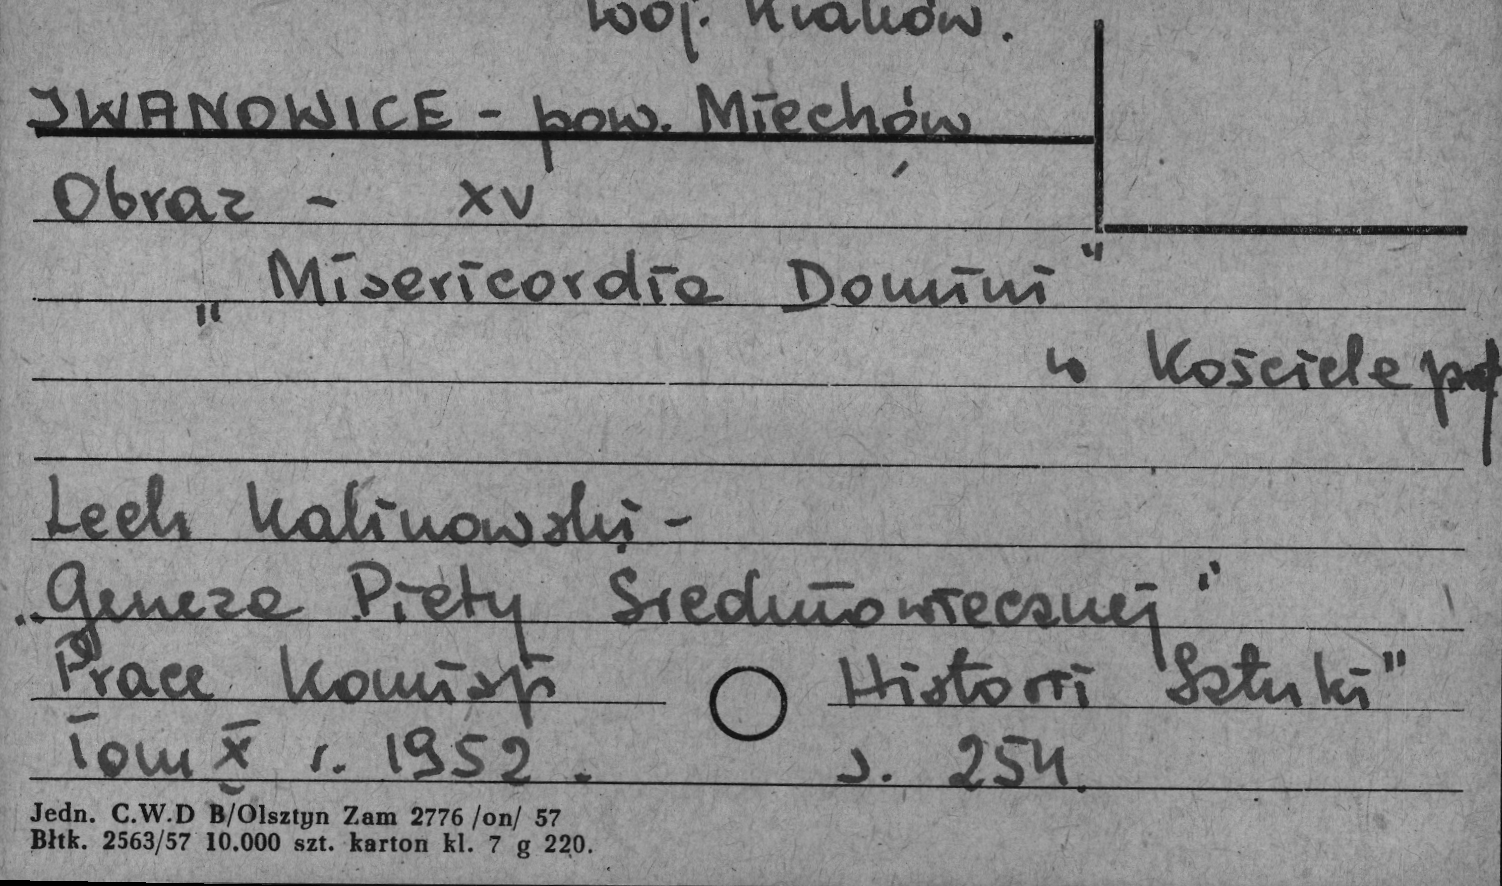 woj. Kraków.
IWANOWICE - pow. Miechów
Obraz - XV
„Misericordia Domini"
w Kościele par
Lech Kalinowski -
„Geneza Piety Średniowiecznej"
„Prace Komisji Historii Sztuki"
Tom X r. 1952. s. 254.
Jedn. C.W.D B/Olsztyn Zam 2776 /on/ 57
Błtk. 2563/57 10.000 szt. karton kl. 7 g 220.